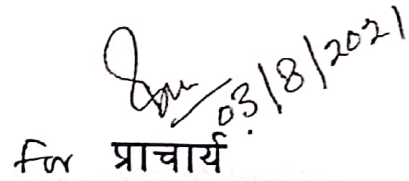 03/8/2021
for प्राचार्य